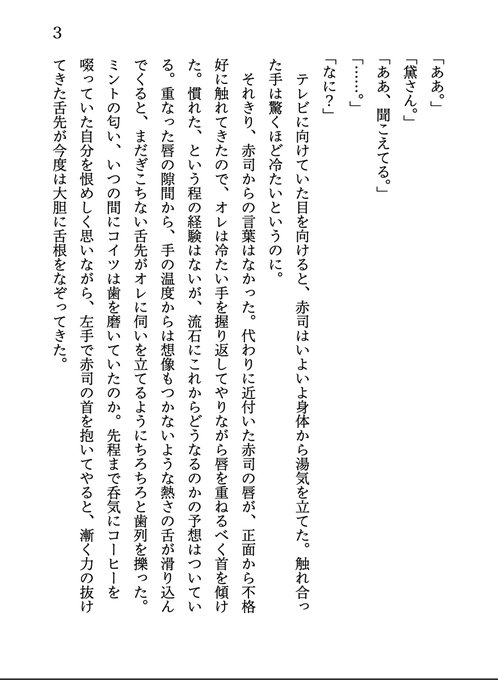 3
「ああ。」
「黛さん。」
「ああ、聞こえてる。」
「……。」
「なに？」
テレビに向けていた目を向けると、赤司はいよいよ身体から湯気を立てた。触れ合っ
た手は驚くほど冷たいというのに。
それきり、赤司からの言葉はなかった。代わりに近付いた赤司の唇が、正面から不格
好に触れてきたので、オレは冷たい手を握り返してやりながら唇を重ねるべく首を傾け
た。慣れた、という程の経験はないが、流石にこれからどうなるのかの予想はついてい
る。重なった唇の隙間から、手の温度からは想像もつかないような熱さの舌が滑り込ん
でくると、まだぎこちない舌先がオレに伺いを立てるようにちろちろと歯列を擽った。
ミントの匂い、いつの間にコイツは歯を磨いていたのか。先程まで呑気にコーヒーを
啜っていた自分を恨めしく思いながら、左手で赤司の首を抱いてやると、漸く力の抜け
てきた舌先が今度は大胆に舌根をなぞってきた。